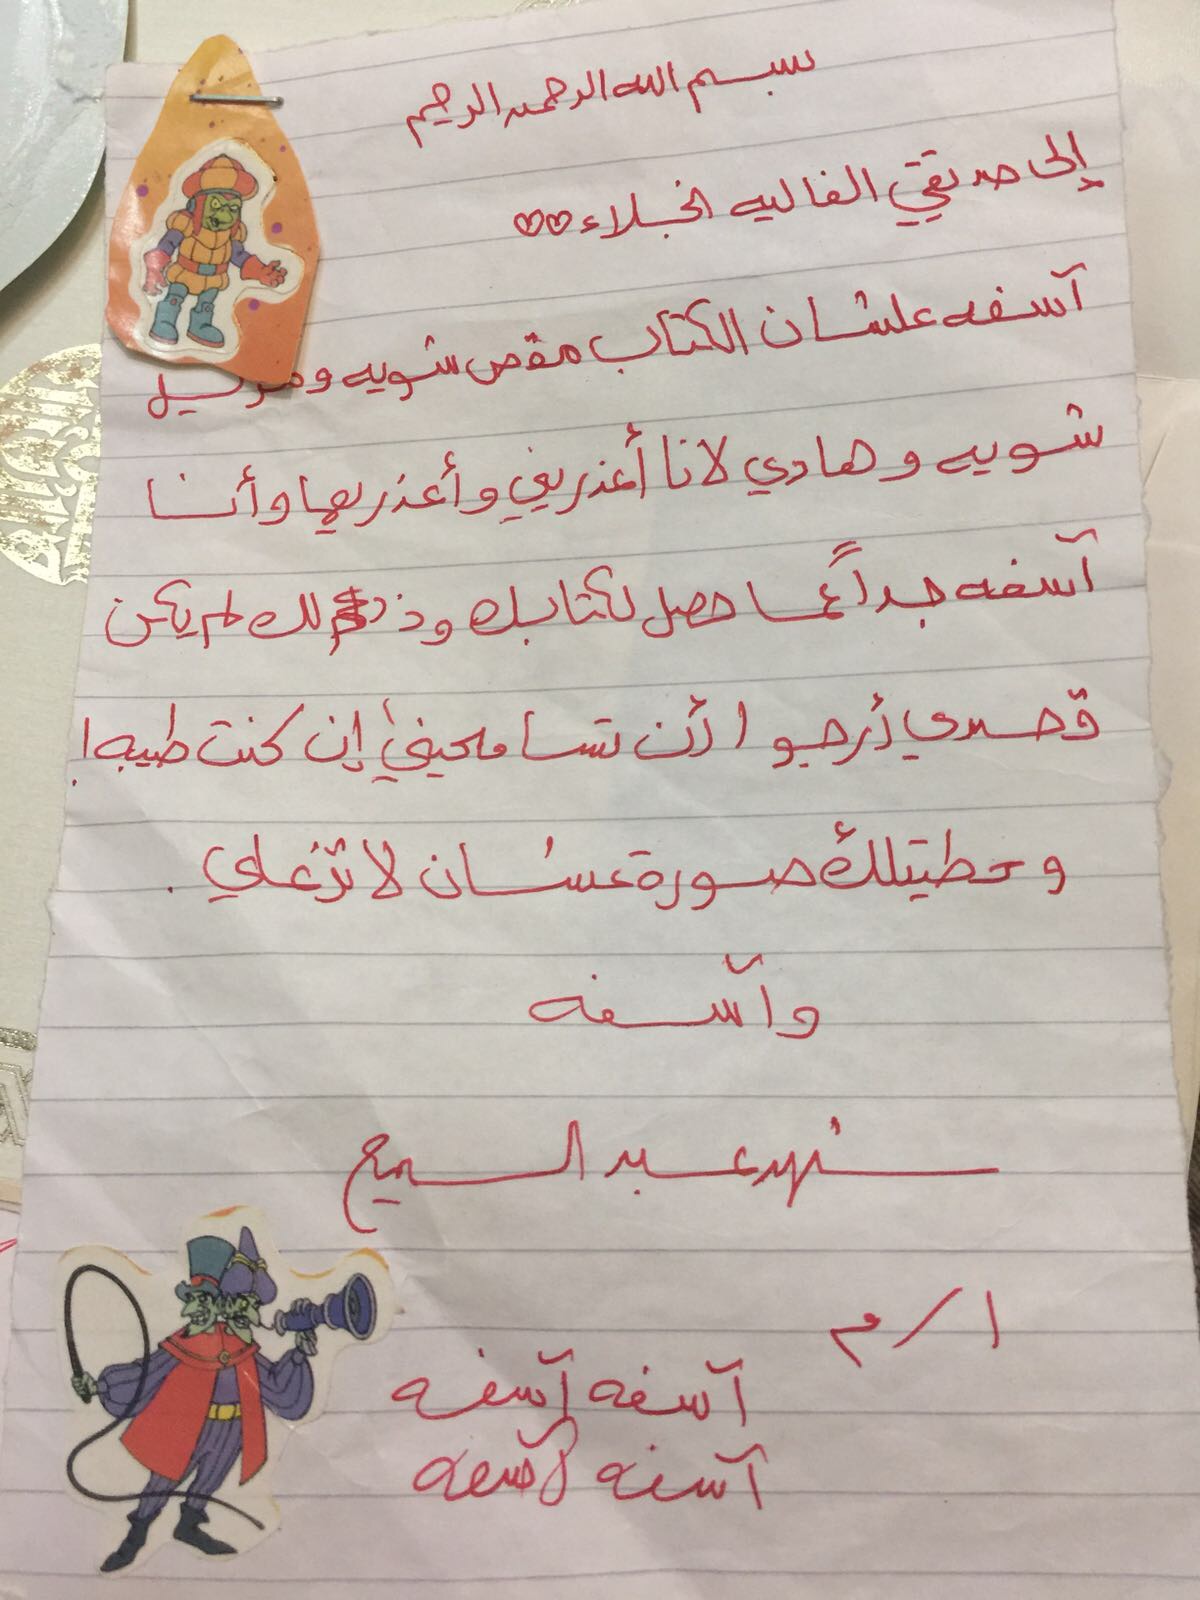 بسم الله الرحمن الرحيم
إلى صديقتي الغاليه الخلاء
آسفه علشان الكتاب مقص شويه و
شويه وهادي لانا أعذريني وأعذريها وأنا
آسفه جداً عما حصل لكتابك وذلك لم يكن
قصدي أرجوا أن تسامحيني إن كنت طيبه!
وحطيتلك صورة عشان لا تزعلي.
وآسفه
شهد عبد السميع
ا/م
آسفه آسفه
آسفه آسفه